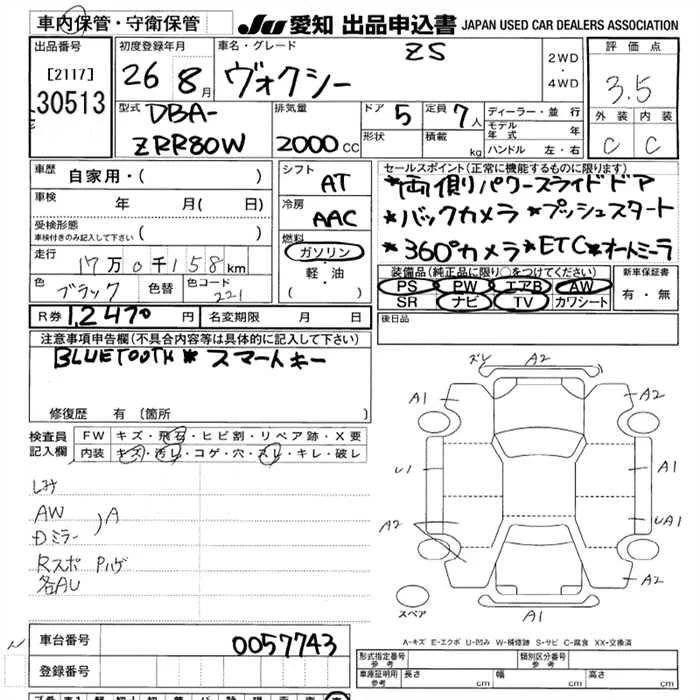 車内保管・守衛保管 JU 愛知 出品申込書 JAPAN USED CAR DEALERS ASSOCIATION
出品番号 [2117] 30513
初度登録年月 26 8月
車名・グレード ヴォクシー ZS
2WD・4WD
評価点 3.5
外装 C 内装 C
型式 DBA-ZRR80W
排気量 2000cc
ドア 5 定員 7人
形状 積載 kg
ディーラー・並行
モデル年式 年
ハンドル 左・右
車歴 自家用・( )
車検 年 月( 日)
受検形態 車検付きのみ記入して下さい ( )
走行 17万0千158km
色 ブラック 色替 色コード 221
シフト AT
冷房 AAC
燃料 ガソリン・軽・油 ( )
セールスポイント(正常に機能するものに限ります)
*両側パワースライドドア
*バックカメラ *プッシュスタート
*360°カメラ *ETC *オートミーラ
装備品(純正品に限り○をつけてください)
PS PW エアB AW
SR ナビ TV カワシート
新車保証書 有・無
R券 12470円 名変期限 月 日
後日品
注意事項申告欄(不具合内容等は具体的に記入して下さい)
BLUETOOTH * スマートキー
修復歴 有 (箇所
検査員記入欄
FW キズ・飛石・ヒビ割・リペア跡・X要
内装 キズ・汚レ・コゲ・穴・スレ・キレ・破レ
しみ
AW
Dミラー )A
Rスポ Pハゲ
各AU
ズレ A2
A1 A2
U1 A1
A2 UA1
A2
A1
スペア
A-キズ E-エクボ U-凹み W-補修跡 S-サビ C-腐食 XX-交換済
車台番号 0057743
登録番号
型式指定番号 参考 類別区分番号 参考
車庫証明用 参考 長さ cm 幅 cm 高さ cm